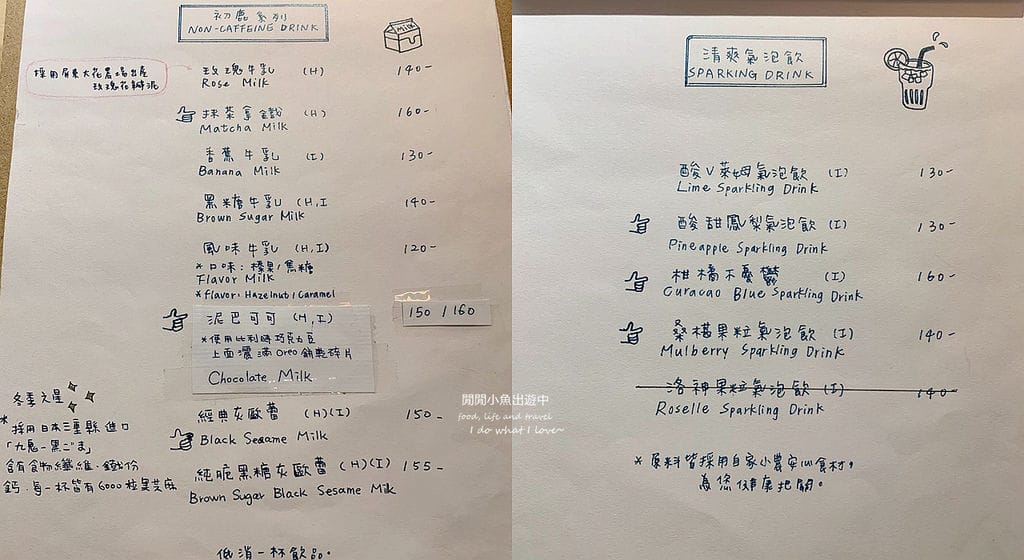 初鹿系列
NON-CAFFEINE DRINK
採用屏東大花農場出產
玫瑰花瓣泥
玫瑰牛乳 (H) 140-
Rose Milk
抹茶拿鐵 (H) 160-
Matcha Milk
香蕉牛乳 (I) 130-
Banana Milk
黑糖牛乳 (H,I 140-
Brown Sugar Milk
風味牛乳 (H,I) 120-
*口味:榛果/焦糖
Flavor Milk
*flavor: Hazelnut/Caramel
泥巴可可 (H,I) 150 / 160
*使用比利時巧克力豆
上面灑滿Oreo餅乾碎片
Chocolate Milk
冬季之星
*採用日本三重縣進口
「九鬼-黑ごま」
含有食物纖維.鐵份
鈣.每一杯皆有6000粒黑芝麻
經典灰歐蕾 (H)(I) 150-
Black Sesame Milk
純脆黑糖灰歐蕾 (H)(I) 155-
Brown Sugar Black Sesame Milk
低消一杯飲品。
MILK
清爽氣泡飲
SPARKING DRINK
酸V萊姆氣泡飲 (I) 130-
Lime Sparkling Drink
酸甜鳳梨氣泡飲 (I) 130-
Pineapple Sparkling Drink
柑橘不憂鬱 (I) 160-
Curacao Blue Sparkling Drink
桑椹果粒氣泡飲 (I) 140-
Mulberry Sparkling Drink
洛神果粒氣泡飲 (I) 140-
Roselle Sparkling Drink
*原料皆採用自家小農安心食材,
為您健康把關。
閒閒小魚出遊中
food, life and travel
I do what I love~